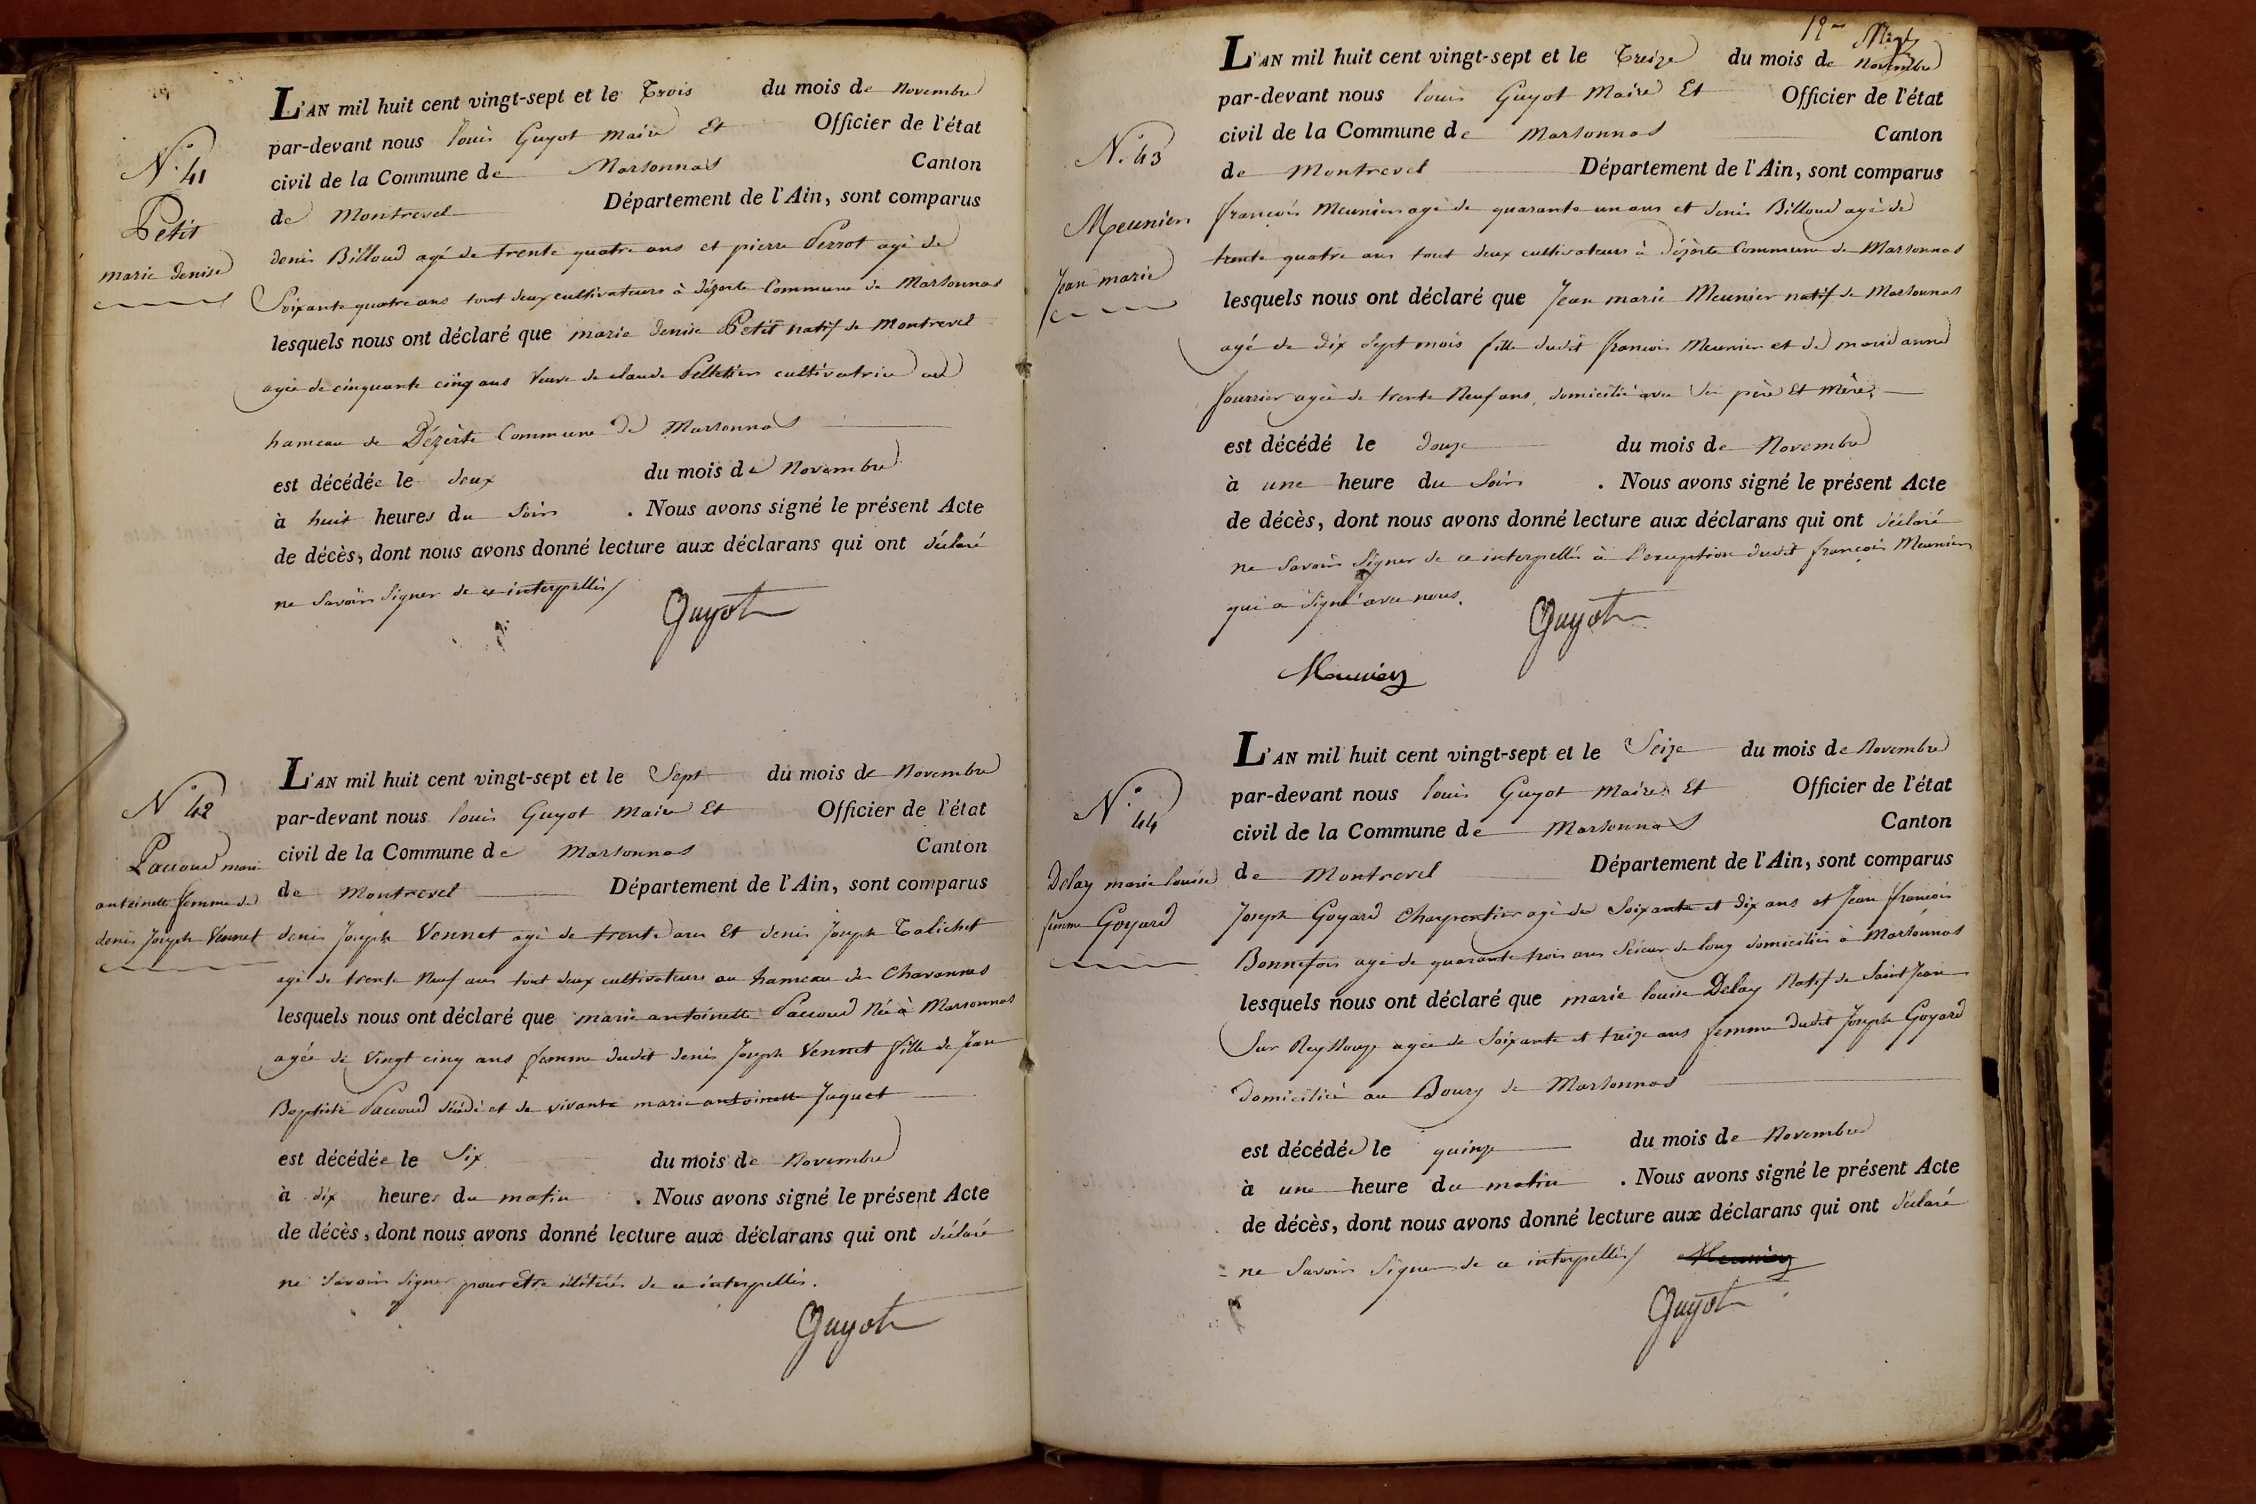 N.° 41
Petit
marie denise
L'AN mil huit cent vingt-sept et le Trois du mois de Novembre
par-devant nous louis Guyot maire Et Officier de l'état
civil de la Commune de Marsonnas Canton
de Montrevel Département de l'Ain, sont comparus
denis Billoud agé de trente quatre ans et pierre Perrot agé de
Soixante quatre ans tout deux cultivateurs à dézerte Commune de Marsonnas
lesquels nous ont déclaré que marie denise Petit natif de Montrevel
agée de cinquante cinq ans Veuve de claude Pelletier cultivatrice au
hameau de Dézerte Commune de Marsonnas
est décédée le deux du mois de Novembre
à huit heures du Soir . Nous avons signé le présent Acte
de décès, dont nous avons donné lecture aux déclarans qui ont déclaré
ne Savoir Signer de ce interpellés
Guyot
N° 42
Paccoud marie
antoinette femme de
denis Joseph Vennet
L'AN mil huit cent vingt-sept et le Sept du mois de Novembre
par-devant nous louis Guyot Maire Et Officier de l'état
civil de la Commune de Marsonnas Canton
de Montrevel Département de l'Ain, sont comparus
denis Joseph Vennet agé de trente ans Et denis Joseph Talichet
agé de trente Neuf ans tout deux cultivateurs au hameau de Chavannes
lesquels nous ont déclaré que marie antoinette Paccoud Né à Marsonnas
agée de Vingt cinq ans femme dudit denis Joseph Vennet fille de Jean
Baptiste Paccoud décédé et de vivante marie antoinette Juquet
est décédée le Six du mois de Novembre
à dix heures du matin . Nous avons signé le présent Acte
de décès, dont nous avons donné lecture aux déclarans qui ont déclaré
ne Savoir Signer pour Etre illitérés de ce interpellés.
Guyot
N.° 43
Meunier
Jean marie
L'AN mil huit cent vingt-sept et le Treize du mois de Novembre
par-devant nous louis Guyot Maire Et Officier de l'état
civil de la Commune de Marsonnas Canton
de Montrevel Département de l'Ain, sont comparus
françois Meunier agé de quarante un ans et denis Billoud agé de
trente quatre ans tout deux cultivateurs à dézerte Commune de Marsonnas
lesquels nous ont déclaré que Jean marie Meunier natif de Marsonnas
agé de dix Sept mois fille dudit françois Meunier et de marie anne
fourrier agée de trente Neuf ans, domicilié avec Ses père Et Mère,
est décédé le douze du mois de Novembre
à une heure du Soir . Nous avons signé le présent Acte
de décès, dont nous avons donné lecture aux déclarans qui ont déclaré
ne Savoir Signer de ce interpellés à l'exception dudit françois Meunier
qui a Signé avec nous.
Guyot
Meunier
N.° 44
Delay marie louise
femme Goyard
L'AN mil huit cent vingt-sept et le Seize du mois de Novembre
par-devant nous louis Guyot Maire Et Officier de l'état
civil de la Commune de Marsonnas Canton
de Montrevel Département de l'Ain, sont comparus
Joseph Goyard Charpentier agé de Soixante et dix ans et Jean françois
Bonnefois agé de quarante trois ans Scieur de long domiciliés à Marsonnas
lesquels nous ont déclaré que marie louise Delay Natif de Saint Jean
Sur Reyssouze agée de Soixante et treize ans femme dudit Joseph Goyard
domiciliée au Bourg de Marsonnas
est décédée le quinze du mois de Novembre
à une heure du matin . Nous avons signé le présent Acte
de décès, dont nous avons donné lecture aux déclarans qui ont déclaré
ne Savoir Signer de ce interpellés Meunier
Guyot